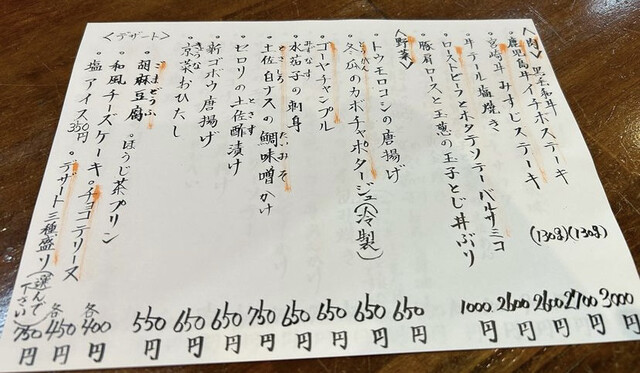 <肉> 黒毛和牛
・鹿児島牛イチボステーキ (130g) 3000円
・宮崎牛みすじステーキ (130g) 2700円
・牛テール塩焼き 2600円
・ローストビーフとホタテソテーバルサミコ 2600円
・豚肩ロースと玉葱の玉子とじ丼ぶり 1000円
<野菜>
・トウモロコシの唐揚げ 650円
・冬瓜のカボチャポタージュ(冷製) 650円
・ゴーヤチャンプル 650円
・水茄子の刺身 650円
たいみそ
・土佐白ナスの鯛味噌かけ 750円
とさず
・セロリの土佐酢漬け 650円
・新ゴボウ唐揚げ 650円
・京菜おひたし 550円
<デザート>
ごまどうふ
・胡麻豆腐 ・ほうじ茶プリン 各400円
・和風チーズケーキ ・チョコテリーヌ 各450円
・塩アイス350円 ・デザート三種盛り(選んで下さい) 750円